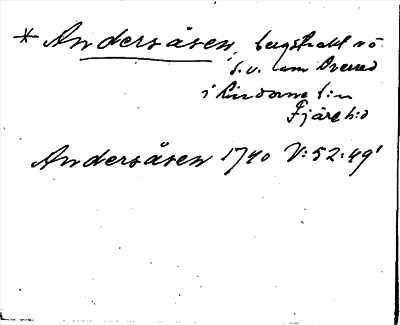 * Andersåsen, bergstrakt nö
s.v. om Övered
i Lindome s:n
Fjäre h:d
Andersåsen 1740 V:52:49'